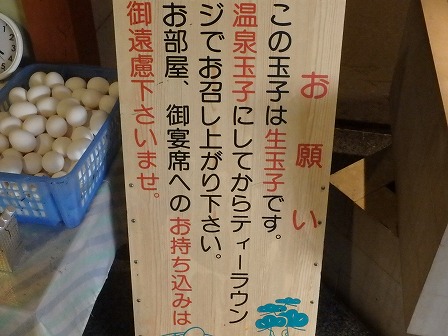 お願い
この玉子は生玉子です。
温泉玉子にしてからティーラウン
ジでお召し上がり下さい。
お部屋、御宴席へのお持ち込みは
御遠慮下さいませ。